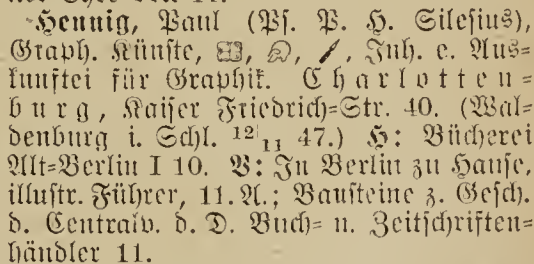 Hennig, Paul (Ps. P. H. Silesius),
Graph. Künste, Inh. e. Aus=
kunftei für Graphik. Charlotten=
burg, Kaiser Friedrich=Str. 40. (Wal=
denburg i. Schl. 12/11 47.) H: Bücherei
Alt=Berlin I 10. V: In Berlin zu Hause,
illustr. Führer, 11. A.; Bausteine z. Gesch.
d. Centralv. d. D. Buch= u. Zeitschriften=
händler 11.